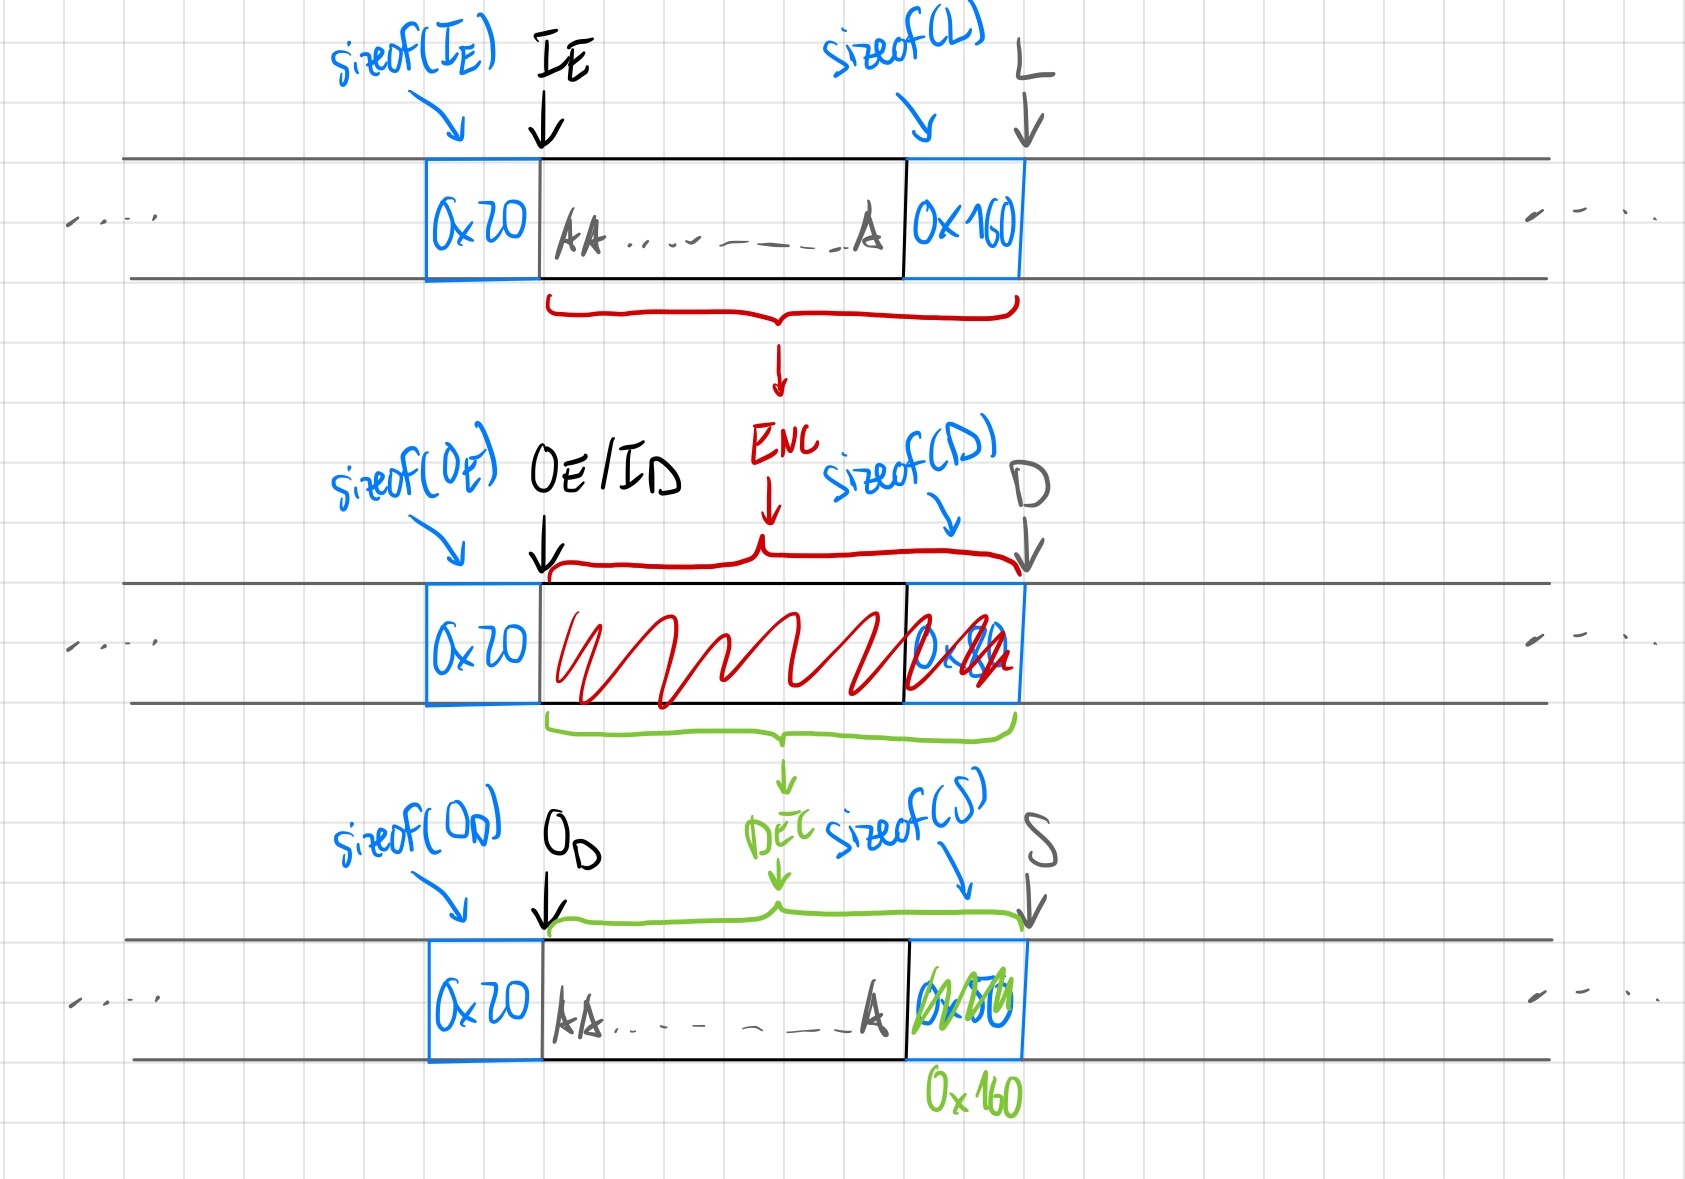 sizeof(IE) IE sizeof(L) L
0x20 AA.......A 0x160
ENC
sizeof(OE) OE/ID sizeof(D) D
0x20
DEC
sizeof(OD) OD sizeof(S) S
0x20 AA.......A
0x160